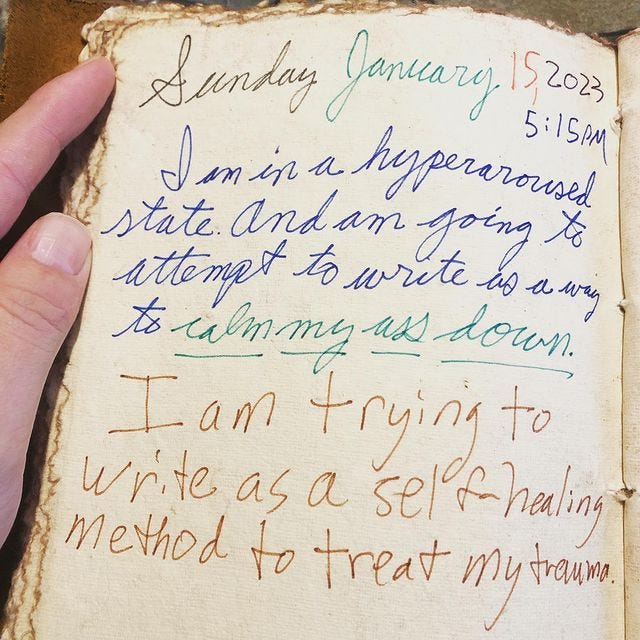 Sunday January 15, 2023
5:15PM
I am in a hyperaroused
state. And am going to
attempt to write as a way
to calm my ass down.
I am trying to
write as a self-healing
method to treat my trauma.